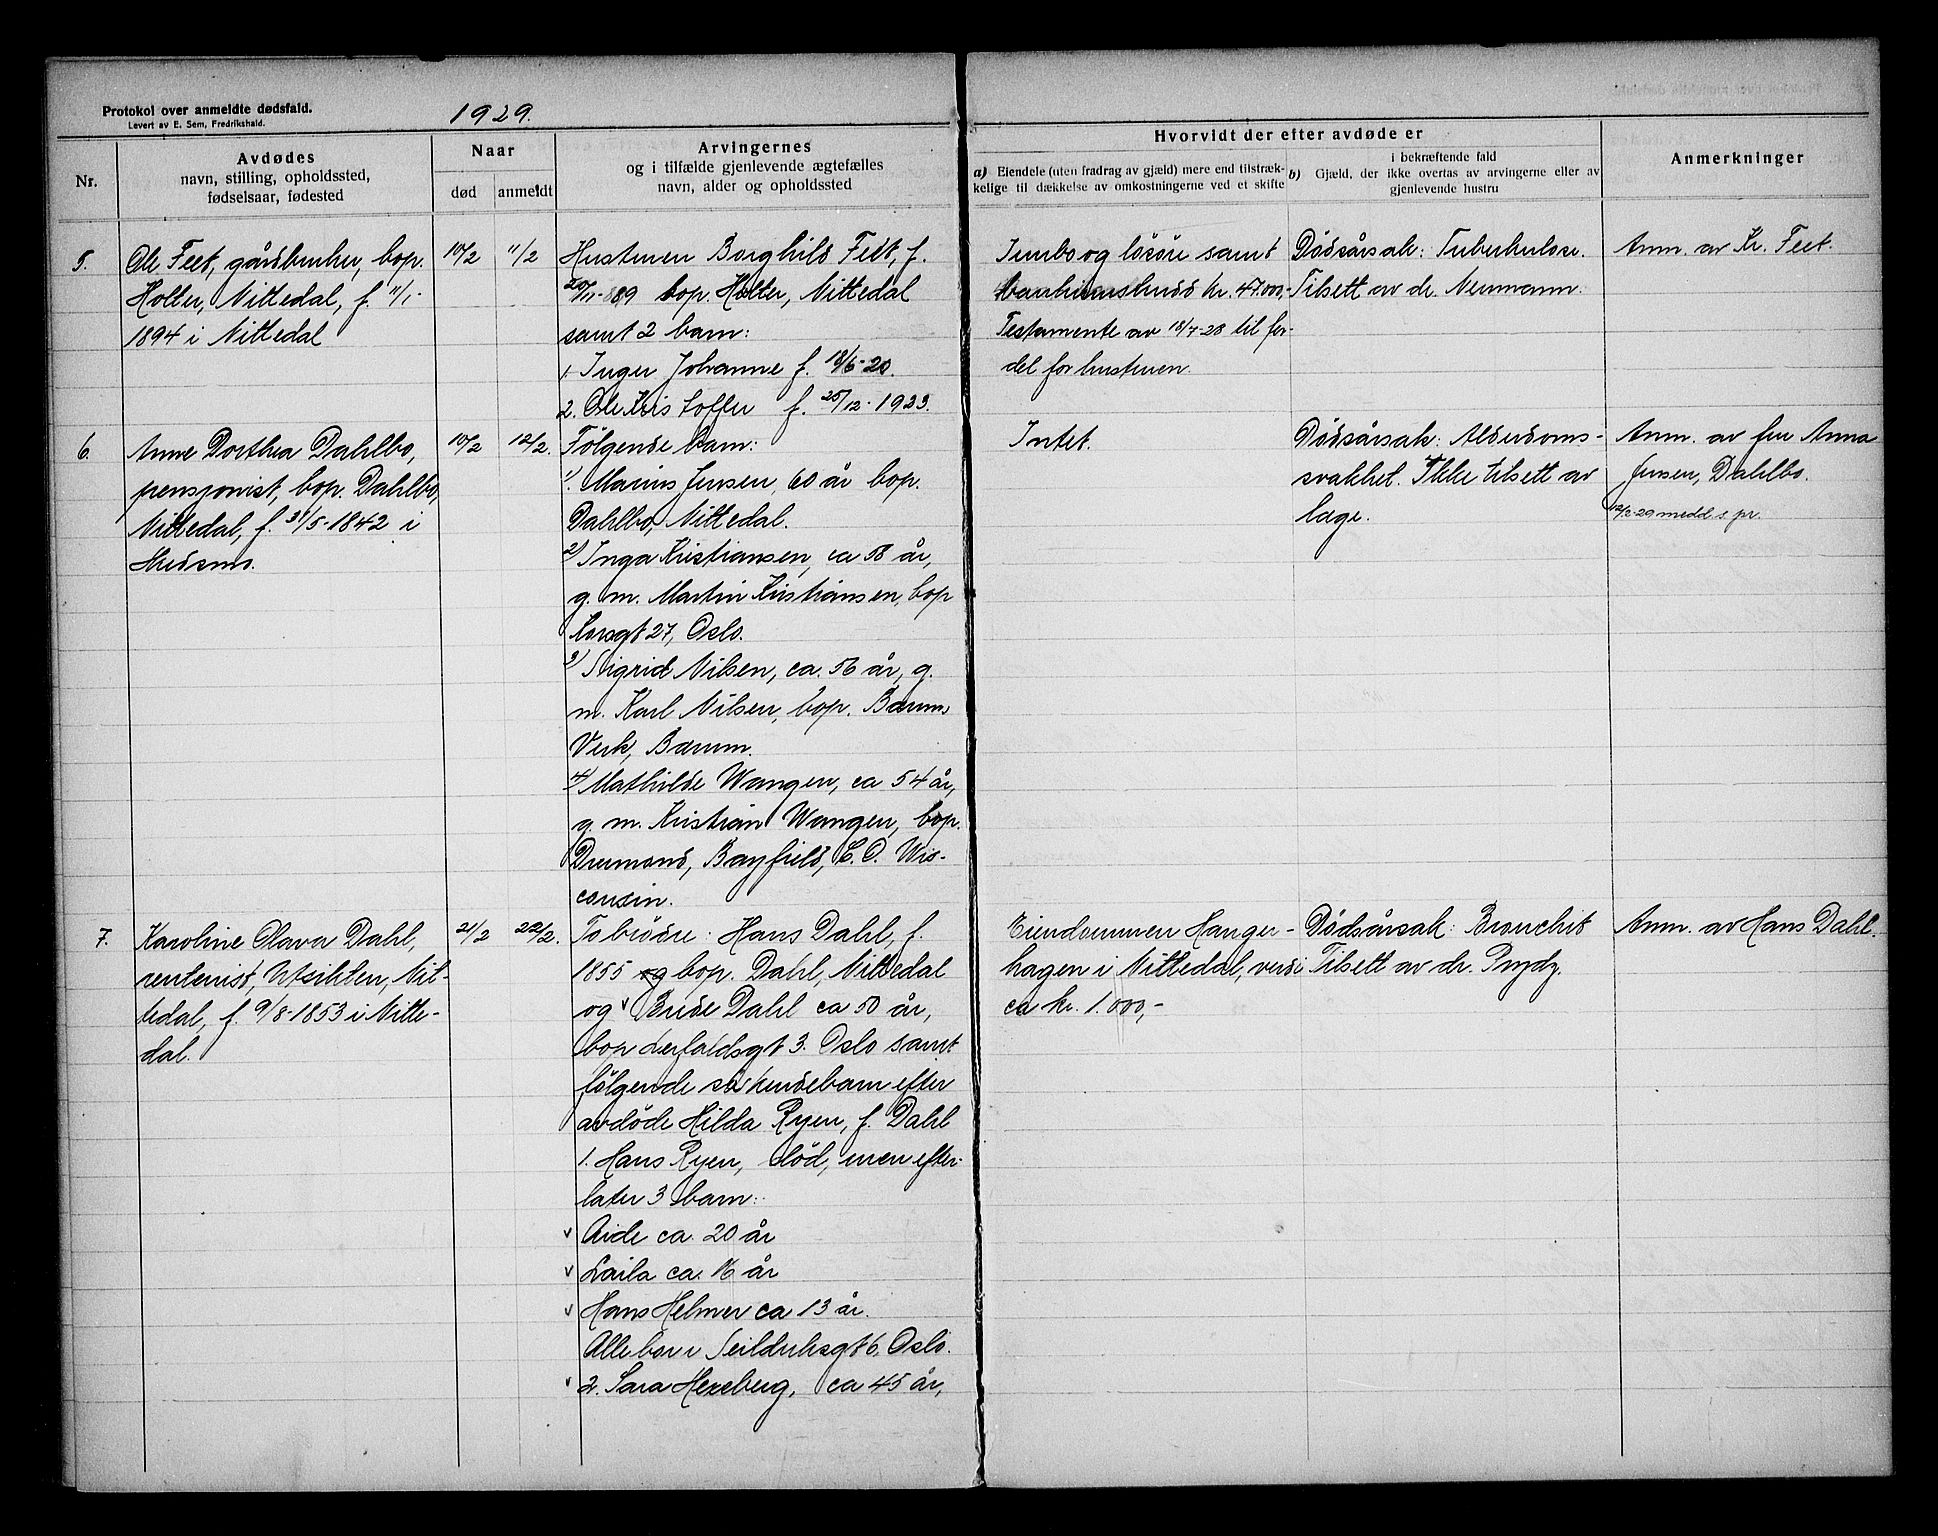 Protokol over anmeldte dødsfald.
Levert av E. Sem, Fredrikshald.
1929.
Nr.
Avdødes
navn, stilling, opholdssted,
fødselsaar, fødested
Naar
død
anmeldt
Arvingernes
og i tilfælde gjenlevende ægtefælles
navn, alder og opholdssted
Hvorvidt der efter avdøde er
a) Eiendele (uten fradrag av gjæld) mere end tilstræk-
kelige til dækkelse av omkostningerne ved et skifte
i bekræftende fald
b) Gjæld, der ikke overtas av arvingerne eller av
gjenlevende hustru
Anmerkninger
5.
Ole Feet, gårdbruker, bop.
Holter, Nittedal, f. 11/1-
1894 i Nittedal
10/2
11/2
Hustruen Borghild Feet, f.
20/11-889 bop. Holter, Nittedal
samt 2 barn:
1. Inger Johanne f. 18/6-20.
2. Ole Kristoffer f. 25/12-1923.
Innbo og løsøre samt
bankinnskudd kr. 47.000,-
Testamente av 18/7-28 til for-
del for hustruen.
Dødsårsak: Tuberkulose.
Tilsett av dr. Neumann.
Anm. av Kr. Feet.
6.
Anne Dorthea Dahlbo,
pensjonist, bop. Dahlbo,
Nittedal, f. 31/5-1842 i
10/2
12/2.
Følgende barn:
1). Marius Jensen, 60 år bop.
Dahlbo, Nittedal.
2) Inga Kristiansen, ca 58 år,
g. m. Martin Kristiansen, bop
Korsgt 27, Oslo.
3) Sigrid Nilsen, ca. 56 år, g.
m. Karl Nilsen, bop. Bærums
Verk, Bærum.
4) Mathilde Wangen, ca 54 år,
g. m. Kristian Wangen, bop.
Drumond, Bayfield, C. O. Wis-
consin.
Intet.
Dødsårsak: Alderdoms-
svakhet. Ikke tilsett av
læge.
Anm. av fru Anna
Jensen, Dahlbo.
12/2-29 medd. s. pr.
7.
Karoline Olava Dahl,
rentenist, Utsikten, Nit-
tedal, f. 9/8-1853 i Nitte-
dal.
21/2
22/2.
To brødre: Hans Dahl, f.
1855 og bop. Dahl, Nittedal
og Brede Dahl ca 50 år,
bop Lerfaldsgt 3. Oslo samt
følgende søskendebarn efter
avdøde Hilda Ryen, f. Dahl
1. Hans Ryen, død, men efter-
later 3 barn:
Aide ca. 20 år
Laila ca. 16 år
Hans Helmer ca 13 år.
Alle bor i Seilduksgt 6, Oslo.
2. Sara Hexeberg, ca 45 år,
Eiendommen Hanger-
hagen i Nittedal, verdi
ca kr. 1.000,-
Dødsårsak: Bronchit
Tilsett av dr. Prydz.
Anm. av Hans Dahl.